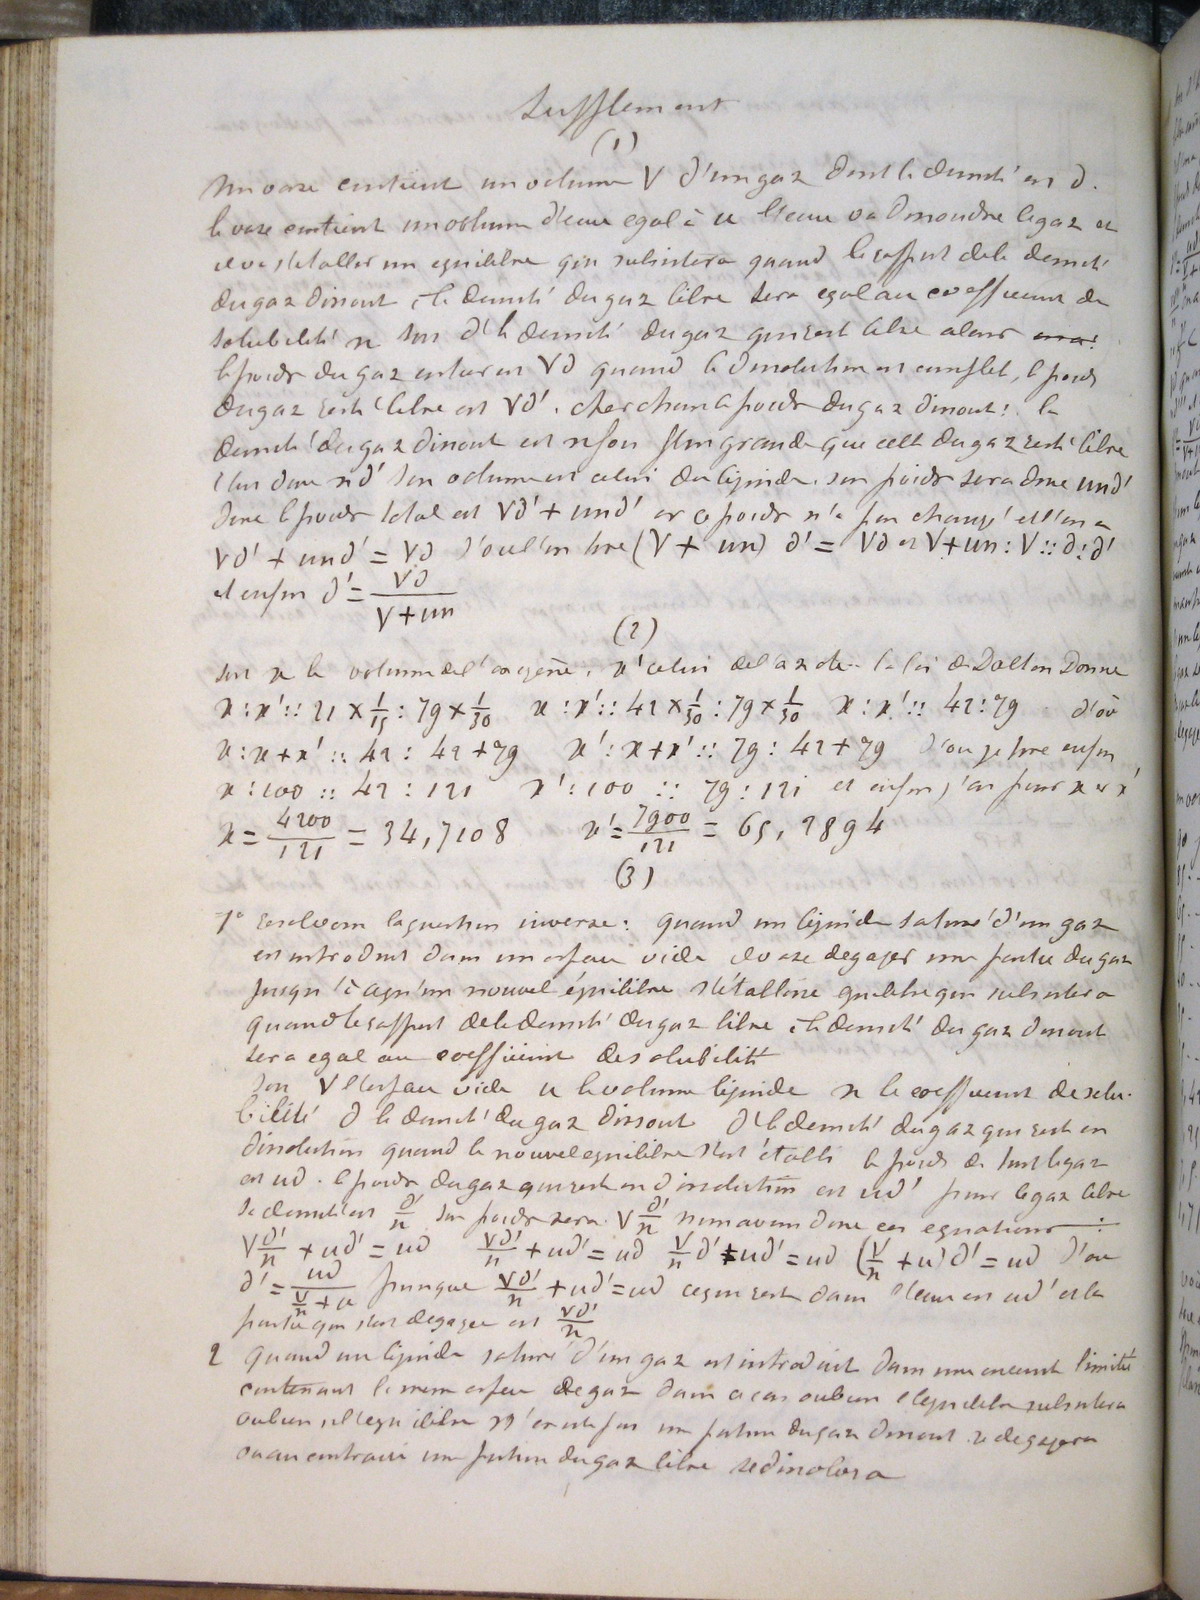 Supplement
(1)
Un vase contient un volume V d'un gaz dont la densité est d.
le vase contient un volume d'eau egal à u l'eau va dissoudre le gaz et
il va s'etablir un equilibre qui subsistera quand le rapport de la densité
du gaz dissout à la densité du gaz libre sera egal au coefficient de
solubilité n soit d' la densité du gaz qui est libre alors
le poids du gaz entier est Vd quand la dissolution est complet, le poids
du gaz resté libre est Vd'. cherchons le poids du gaz dissout: la
densité du gaz dissout est n fois plus grande que celle du gaz resté libre
elle est donc nd' son volume est celui du liquide. son poids sera donc und'
donc le poids total est Vd' + und' or ce poids n'a pas changé et l'on a
Vd' + und' = Vd d'où l'on tire (V + un) d' = Vd et V + un : V :: d : d'
et enfin d' = Vd / V + un
(2)
soit x le volume de l'oxigène, x' celui de l'azote. la loi de Dalton Donne
x : x' :: 21 × 1/15 : 79 × 1/30 x : x' :: 42 × 1/30 : 79 × 1/30 x : x' :: 42 : 79 d'où
x : x + x' :: 42 : 42 + 79 x' : x + x' :: 79 : 42 + 79 d'où je tire enfin
x : 100 :: 42 : 121 x' : 100 :: 79 : 121 et enfin j'ai pour x et x'
x = 4200 / 121 = 34,7108 x' = 7900 / 121 = 65,2894
(3)
1° Resolvons la question inverse: quand un liquide saturé d'un gaz
est introduit dans un espace vide il va se degager une partie du gaz
jusqu'à ce qu'un nouvel équilibre s'établisse equilibre qui subsistera
quand le rapport de la densité du gaz libre à la densité du gaz dissout
sera egal au coefficient de solubilité
Soit V l'espace vide u le volume liquide n le coefficient de solu-
bilité d la densité du gaz dissout d' la densité du gaz qui est en
dissolution quand le nouvel equilibre s'est établi le poids de tout le gaz
est ud. le poids du gaz qui reste en dissolution est ud' pour le gaz libre
sa densité est d'/n son poids sera V d'/n nous avons donc ces equations :
V d'/n + ud' = ud Vd'/n + ud' = ud V/n d' + ud' = ud (V/n + u) d' = ud d'où
d' = ud / V/n + u puisque Vd'/n + ud' = ud ce qui reste dans l'eau est ud' et la
partie qui s'est degagée est Vd'/n
2 quand un liquide saturé d'un gaz est introduit dans une enceinte limitée
contenant le meme espece de gaz dans ce cas ou bien l'equilibre subsistera
ou bien si l'equilibre n'existe pas une portion du gaz dissout se degagera
ou au contraire une portion du gaz libre se dissolvera